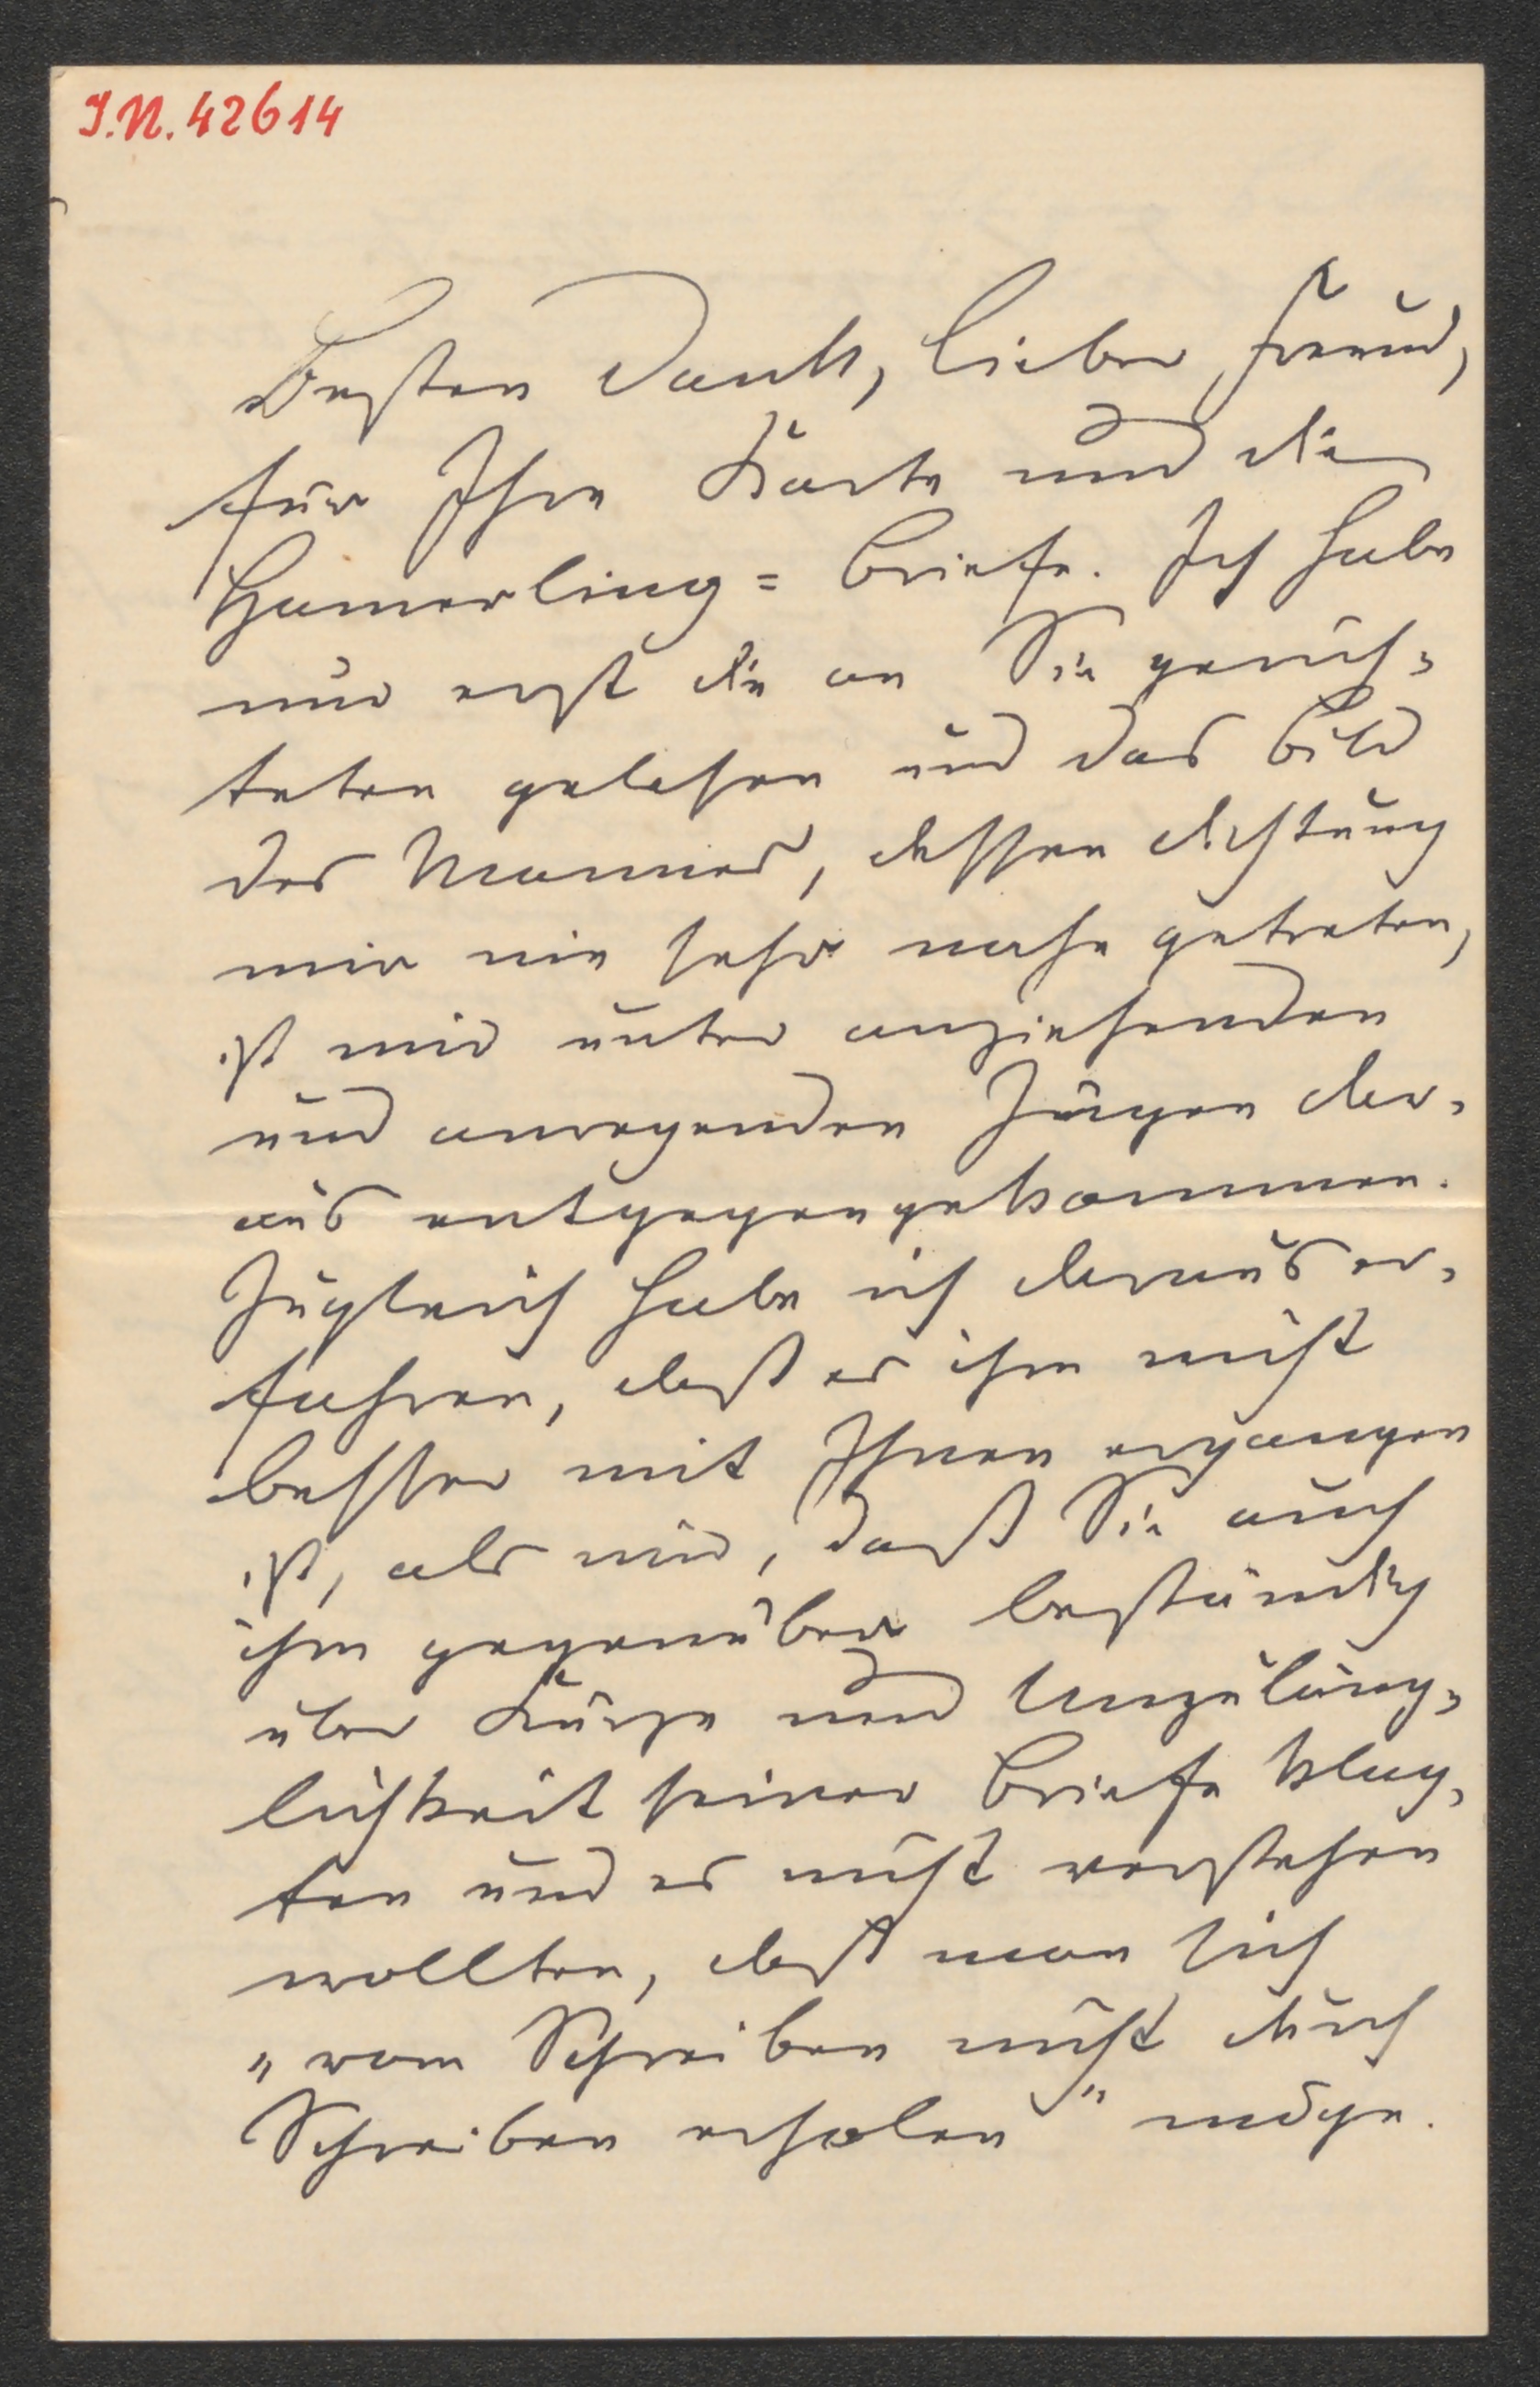 I.N. 42614
Besten Dank, lieber Freund,
für Ihre Karte und die
Hamerling= Briefe. Ich habe
nur erst die an Sie gerich=
teten gelesen und das Bild
des Mannes, dessen Dichtung
mir nie sehr nahe getreten,
ist mir unter anziehenden
und anregenden Zügen dar=
aus entgegengekommen.
Zugleich habe ich daraus er=
fahren, daß es ihm nicht
besser mit Ihnen ergangen
ist, als mir, daß Sie auch
ihm gegenüber beständig
über Kürze und Unzuläng=
lichkeit seiner Briefe klag=
ten und es nicht verstehen
wollten, daß man sich
„vom Schreiben nicht durch
Schreiben erholen" möge.